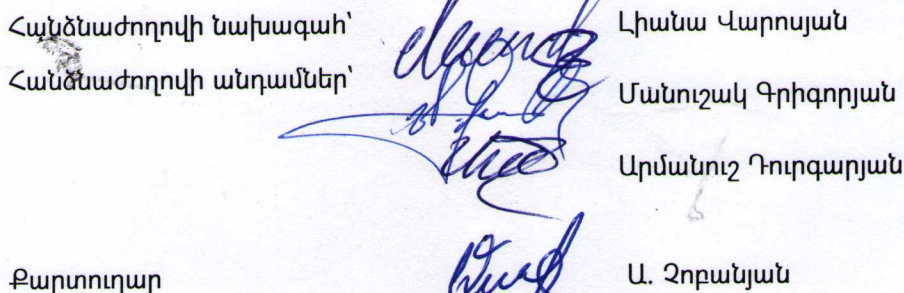 Հանձնաժողովի նախագահ՝ Լիանա Վարոսյան
Հանձնաժողովի անդամներ՝ Մանուշակ Գրիգորյան
Արմանուշ Դուրգարյան
Քարտուղար Ա. Չոբանյան